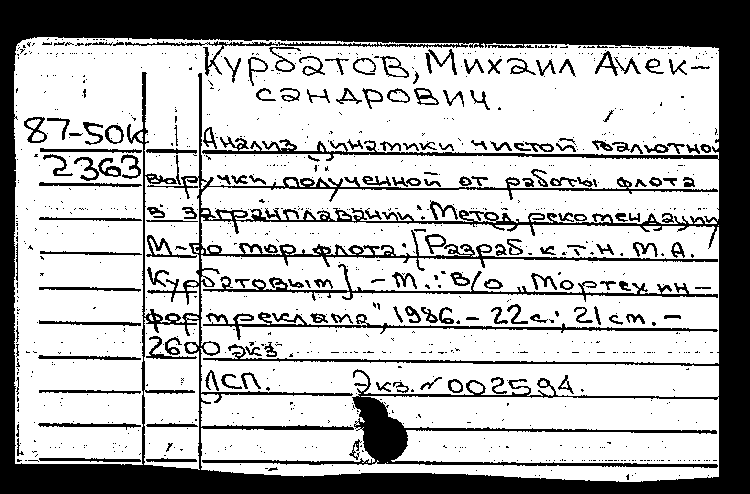 Курбатов, Михаил Алек-
сандрович.
87-50к
2363
Анализ динамики чистой валютной
выручки, полученной от работы флота
в загранплавании: Метод. рекомендации
М-во мор. флота; [Разраб. к.т.н. М.А.
Курбатовым]. - М.: В/о "Мортехин-
формреклама", 1986. - 22 с.; 21 см. -
2600 экз.
ДСП. Экз. № 002594.